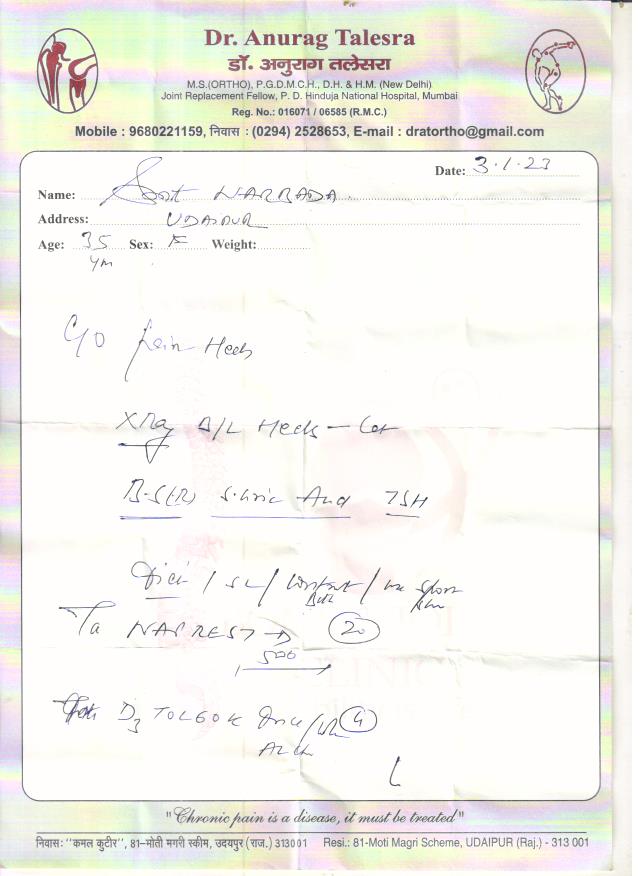 Dr. Anurag Talesra
डॉ. अनुराग तलेसरा
M.S.(ORTHO), P.G.D.M.C.H., D.H. & H.M. (New Delhi)
Joint Replacement Fellow, P. D. Hinduja National Hospital, Mumbai
Reg. No.: 016071 / 06585 (R.M.C.)
Mobile : 9680221159, निवास : (0294) 2528653, E-mail : dratortho@gmail.com
Date: 3.1.23
Name: Smt NARBADA
Address: UDAIPUR
Age: 35 Sex: F Weight:
C/O Pain Heels
X Ray B/L Heels - Lat
B-S(R) S. Uric Acid TSH
/ SL / Contrast Bath / use
NAPREST D 20
500
D3 TOL 60K Once / 4
"Chronic pain is a disease, it must be treated"
निवास: "कमल कुटीर", 81-मोती मगरी स्कीम, उदयपुर (राज.) 313001 Resi.: 81-Moti Magri Scheme, UDAIPUR (Raj.) - 313 001